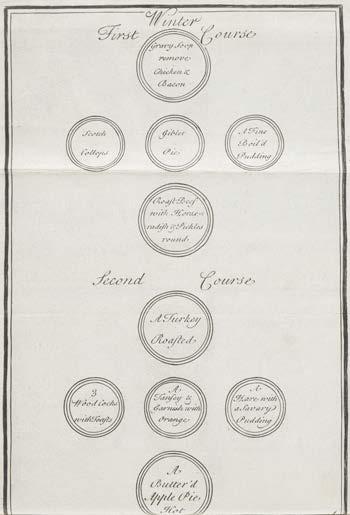 Winter
First Course
Gravy Soop
remove
Chicken &
Bacon
Scotch
Collops
Giblet
Pie
A Fine
Boil'd
Pudding
Roast Beef
with Horse-
radish & Pickles
round
Second Course
A Turkey
Roasted
3
Wood Cocks
with Toasts
A
Tansey &
Garnish with
Orange
A
Hare with
a Savary
Pudding
A
Butter'd
Apple Pie
Hot